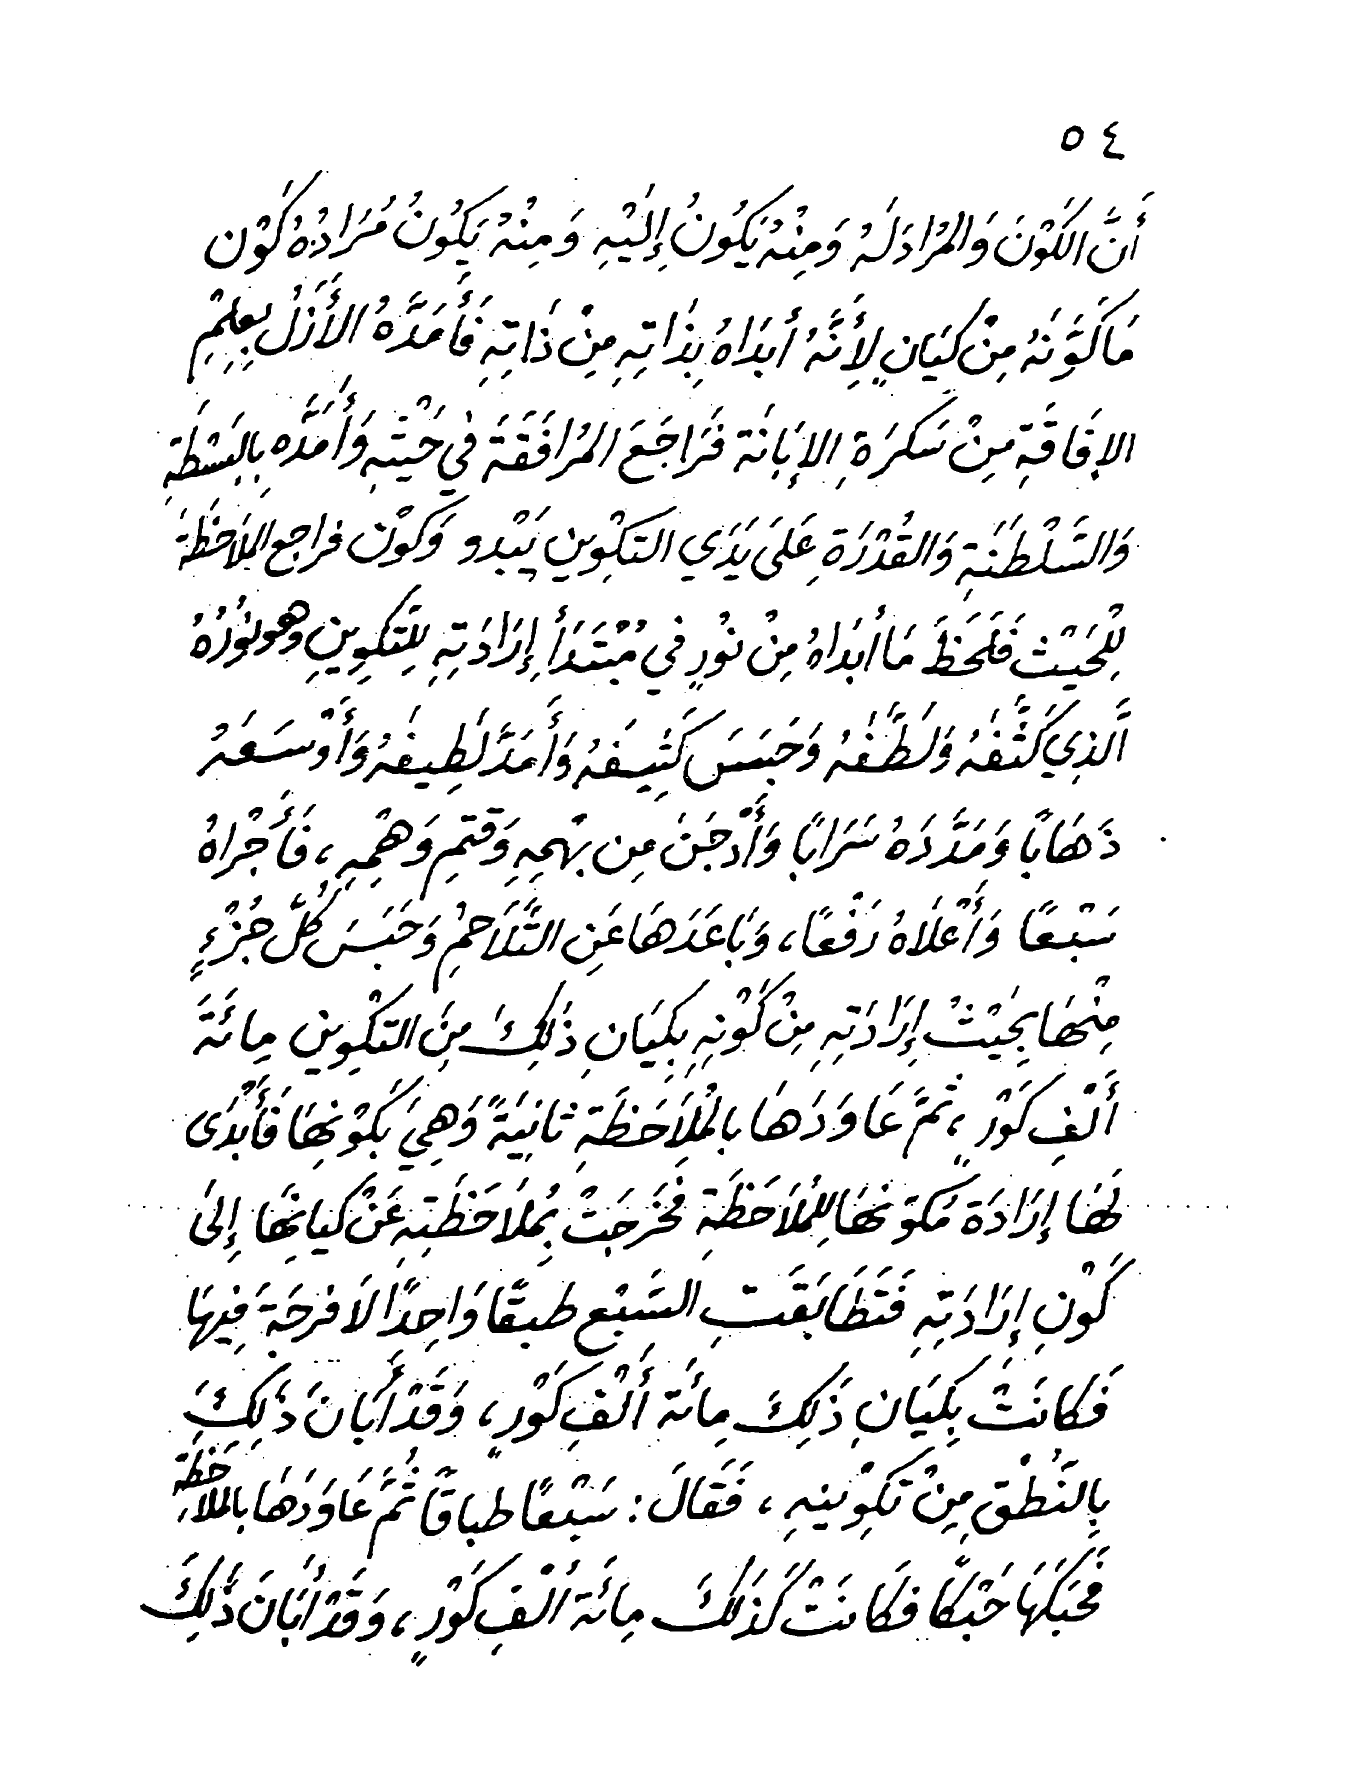 ٥٤
أَنَّ الكَوْنَ وَالمُرَادَ لَهُ وَمِنْهُ يَكُونُ إِلَيْهِ وَمِنْهُ يَكُونُ مُرَادُهُ كَوْن
مَا كَوَّنَهُ مِنْ كَيَانٍ لِأَنَّهُ أَبدَاهُ بِذَاتِهِ مِنْ ذَاتِهِ فَأَمَدَّهُ الأَزَلُ بِعِلمِ
الإِفَاقَةِ مِنْ سَكرَةِ الإِبَانَة فَرَاجَعَ المُرَافَقَةَ في حَيْثِهِ وَأَمَدَّه بِالبَسْطَةِ
وَالسَّلْطَنَةِ وَالقُدْرَةِ عَلَى يَدَي التَكْوِينِ يَبْدو وَكَوْن فراجع الملَاحَظَة
لِلْحَيْث فَلَحَظَ مَا أَبدَاهُ مِنْ نُورٍ في مُبْتَدَأِ إِرَادَتِهِ لِلتَكوِينِ وهو نُورُهُ
الَّذِي كَثَّفَهُ وَلَطَّفَهُ وَحَبَسَ كَثِيفَهُ وَأَمَدَّ لَطِيفَهُ وَأَوْسَعَهُ
ذَهَابًا وَمَدَّدَهُ سَرَابًا وَأَدْجَنَ مِن بَهْمِهِ وَقتمِ وَهْمِهِ ، فَأَجْرَاهُ
سَبْعًا وَأَعْلَاهُ رَفْعًا ، وَبَاعَدَهَا عَنِ التَّلَاحُمِ وَحَبَسَ كُلَّ جُزْءٍ
مِنْهَا بِحَيْثُ إِرَادَتِهِ مِنْ كَوْنِهِ بِكَيَانِ ذَلِكَ مِنَ التكْوِينِ مِائَةَ
أَلْفِ كَوْرٍ ، ثمَّ عَاوَدَهَا بالْمُلَاحَظَةِ ثَانِيَةً وَهِيَ بكَوْنِهَا فَأَبْدَى
لَهَا إِرَادَة مُكوّنهَا لِلمُلَاحَظَةِ فَخَرَجَتْ بِمُلَاحَظَتِهِ عَنْ كيانِهَا إِلَى
كَوْنِ إِرَادَتِهِ فَتَطَابَقَتِ السَّبْع طبقًا وَاحِدًا لَا فرجَة فِيهَا
فَكَانَتْ بِكَيَانِ ذَلِكَ مِائَة أَلْفِ كَوْرٍ ، وَقَدْ أَبَانَ ذَلِكَ
بِالنُطْقِ مِنْ تَكوِينِهِ ، فَقَالَ : سَبْعًا طباقًا ثُمَّ عَاوَدَهَا بالملاحَظَة
فَحَبَكَهَا حَبْكًا فكَانَتْ كَذَلكَ مِائَة أَلْفِ كَوْرٍ ، وَقَدْ أَبَانَ ذَلِكَ